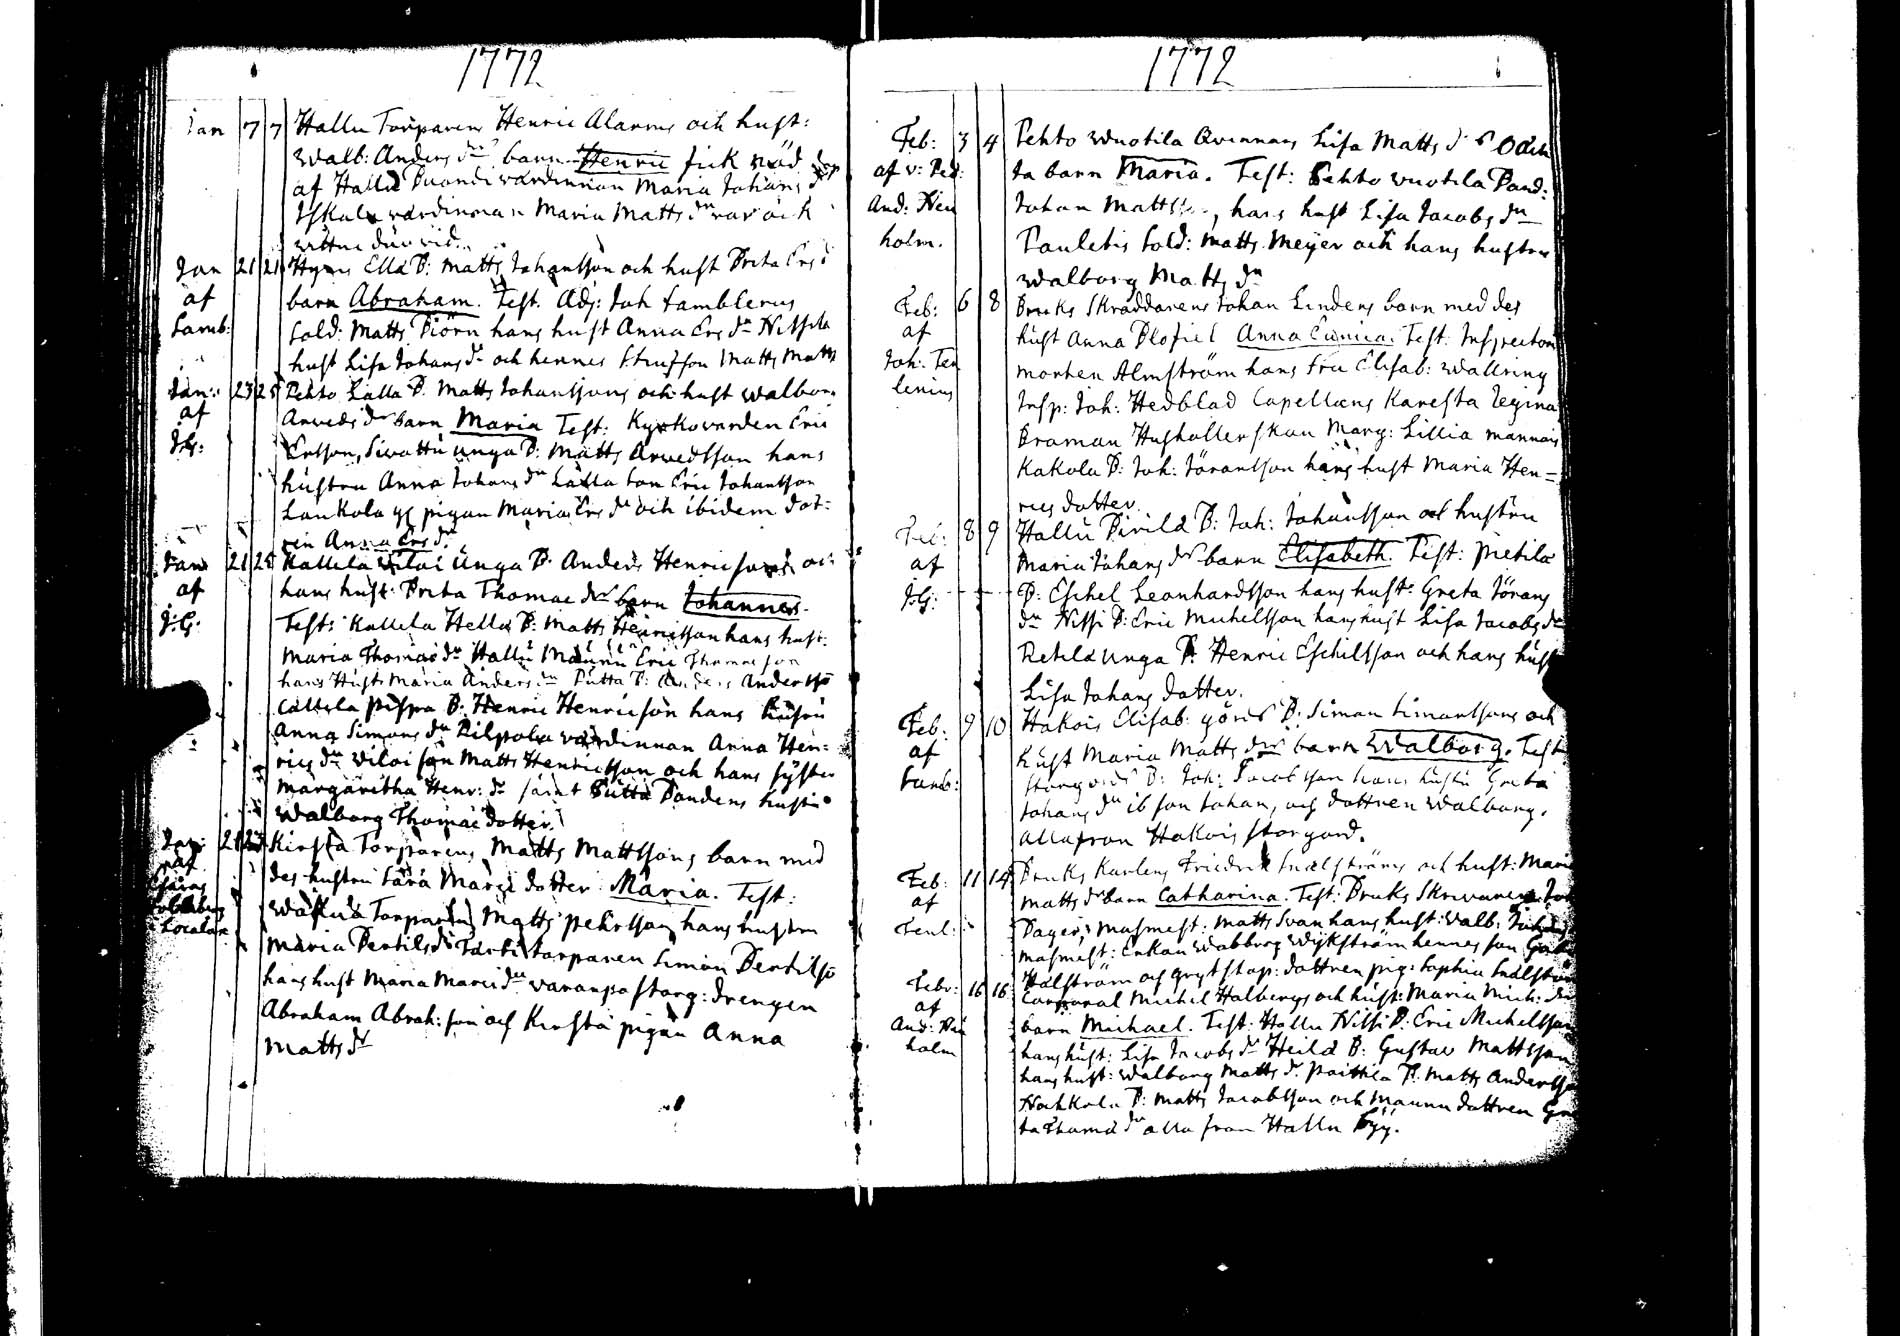 1772
Jan 7 7 Hallu Torparens Henric Alarms och hust:
Walb: Anders dr barn Henric fick nöd dop
af Hallu Puandi värdinnan Maria Johans dr
Iskala värdinnan Maria Matts dr var ock
vittne där vid.
Jan 21 21 Hyvis Ella B: Matts Johansson och hust Brita Ers d
af barn Abraham. Test. Adj: Joh Lamblerus
Lamb: Sold: Matts Biörn hans hust Anna Ers dr Nissila
hust Lisa Johans dr och hennes Stiufson Matts Matts
Jan: 23 25 Pehto Lalla B. Matts Johanssons och hust Walbor
af Arveds dr barn Maria Test: Kyrkovärden Eric
J.G: Ersson, Sivattu unga B: Matts Arvedsson hans
hustru Anna Johans dr Lalla Son Eric Johansson
Laukola pigan Maria Ers dr och ibidem dot:
ren Anna Ers dr
Jan 21 25 Kallela Viloi Unga B. Anders Henricsons och
af hans hust: Brita Thomae dr barn Johannes.
J.G. Test: Kallela Hella B: Matts Henricsson hans hust:
Maria Thomae dr Hallu Maunu Eric Thomasson
hans Hust Maria Anders dr Putta B: Anders Anderss
Callela Pispa B: Henric Henricson hans hustru
Anna Simons dr Pilpola värdinnan Anna Hen:
rics dr Viloi son Matts Henricsson och hans syster
Margäretha Henr: dr samt Putta Bondens hustru
Walborg Thomae dotter.
Jan: 21 Kirsta Torparens Matts Mattssons barn med
af des hustru Sara Marci dotter Maria. Test:
Torparen Matts Pehrsson hans hustru
Maria Bertils dr Tarti torparen Simon Bertilss
hans hust Maria Marci dr varanpa storg: drengen
Abraham Abrah: son och Kirsta pigan Anna
Matts dr
1772
Feb: 3 4 Pehto Wuotila Qvinnans Lisa Matts dr Oäch
af v: Past: ta barn Maria. Test: Pehto Wuotila Band:
And: Ren Johan Mattss, hans hust Lisa Jacobs dr
holm. Pauletis Sold: Matts Meyer och hans hustru
Walborg Matts dr
Feb: 6 8 Bruks Skräddarens Johan Lindens barn med des
af hust Anna Plofiel Anna Eunica. Test: Inspectorn
Joh: Ten Morten Almström hans Fru Elisab: Wallring
lenius Insp: Joh: Hedblad Capellans Käresta Regina
Braman Hushållerskan Marg: Lillia Mannais
Kakola B: Joh: Jöransson hans hust Maria Hen=
rics dotter.
Feb: 8 9 Hallu Pirila B: Joh: Johansson och hustru
af Maria Johans dr barn Elisabeth. Test: Pietila
J.G: B: Eschel Leonhardsson hans hust: Greta Jörans
dr Nissi B: Eric Michelsson hans hust Lisa Jacobs dr
Retila Unga B. Henric Eschilsson och hans hust
Lisa Johans dotter.
Feb: 9 10 Hakois Elisab: görds B: Simon Simonssons och
af hust Maria Matts drs barn Walborg. Test
Lamb: storgords B: Joh: Jacobsson hans hustru Greta
Johans dr ib son Johan, och dottren Walborg.
alla från Hakois storgord.
Feb: 11 14 Bruks Karlens Friedric Snälströms och hust: Mari
af Matts dr barn Catharina. Test: Bruks Skrivaren Joh
Tenl: Dager, Masmest: Matts Svan hans hust: Walb: Johans
Masmest: Enkan Wabborg Wijkström hennes son Gab
Hälström och grytstöp: dottren pig: Sophia Snälström
Febr: 16 16 Corporal Michel Halbergs och hust: Maria Mich: dr
af barn Michael. Test: Hallu Nissi B: Eric Michelsson
And: Ren hans hust: Lisa Jacobs dr Heila B: Gustav Mattsson
holm hans hust: Walborg Matts dr. Paittila B. Matts Anderss
Nachkola B: Matts Jacobsson och Maunu dottren Gre
ta Thoma dr alla från Hallu byy.